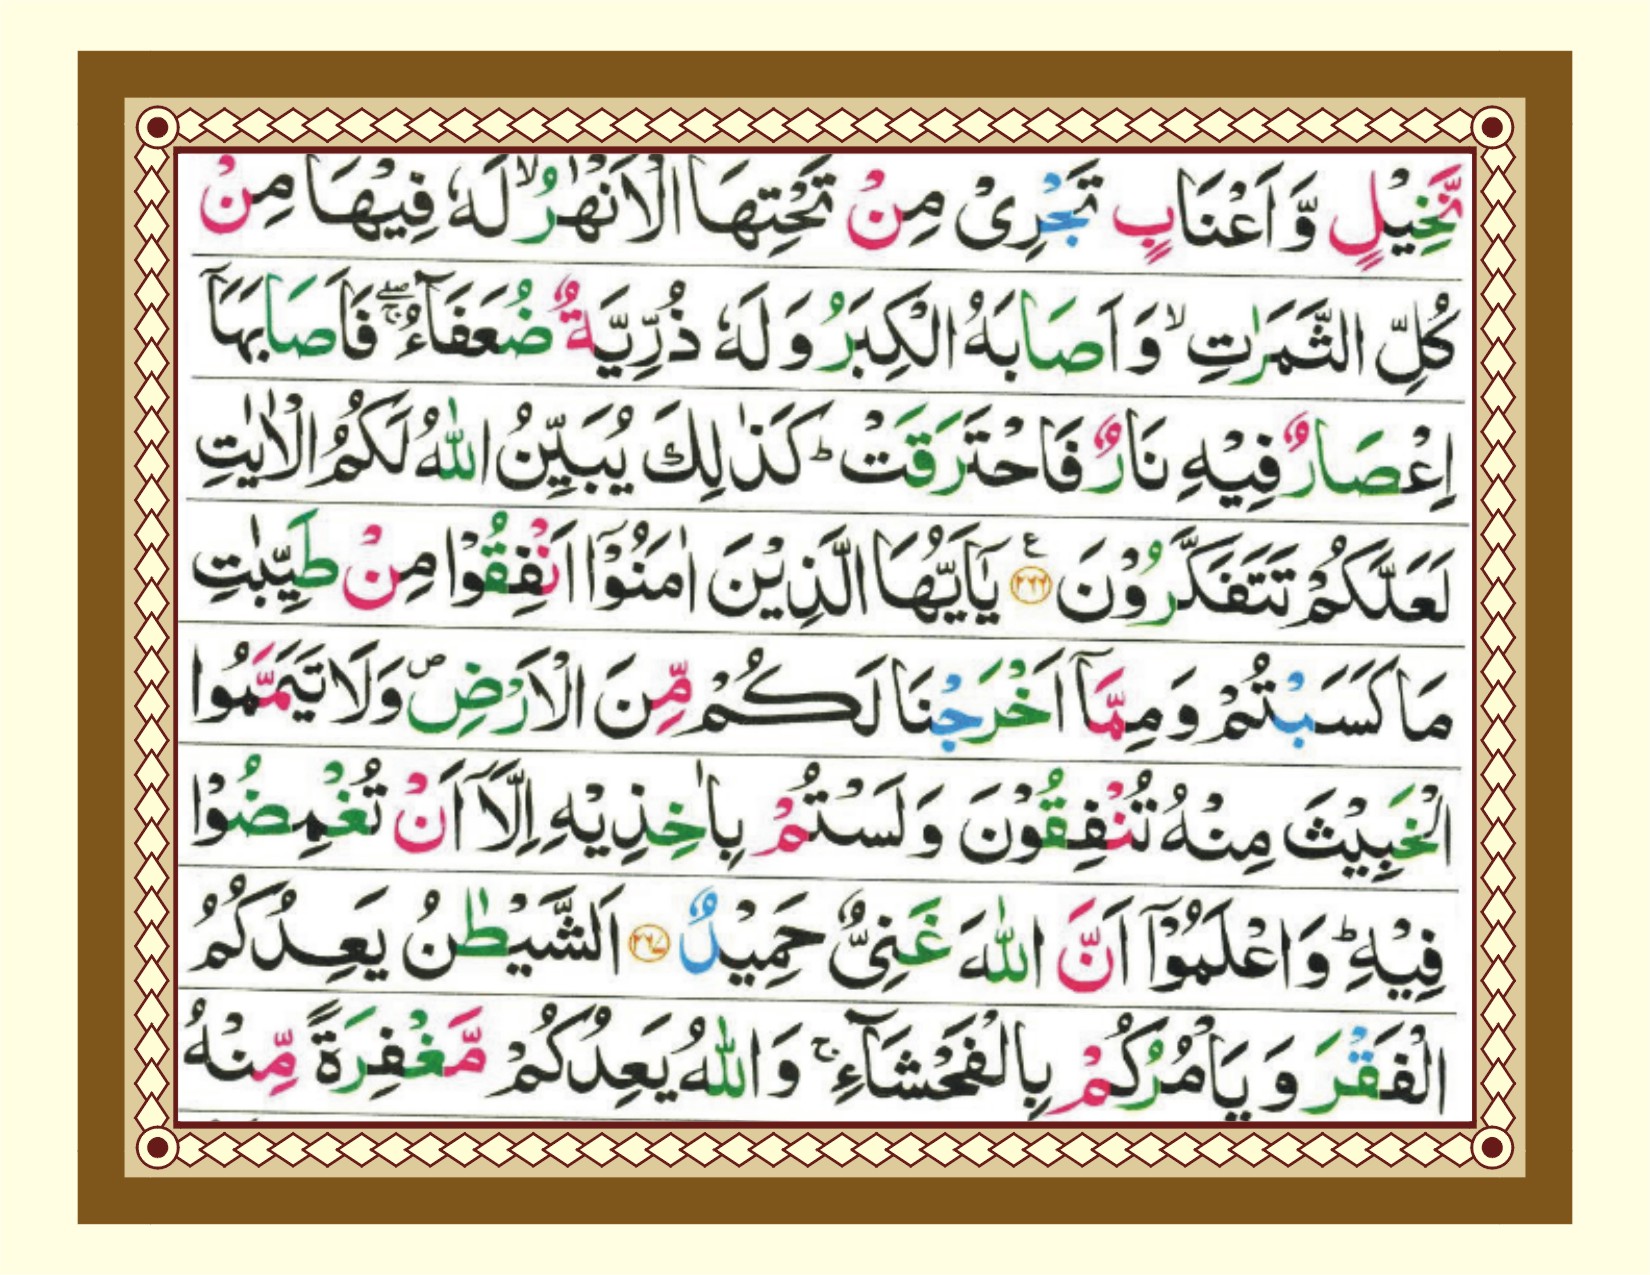 نَّخِيْلٍ وَّ اَعْنَابٍ تَجْرِىْ مِنْ تَحْتِهَا الْاَنْهٰرُ ۙ لَهٗ فِيْهَا مِنْ
كُلِّ الثَّمَرٰتِ ۙ وَ اَصَابَهُ الْكِبَرُ وَ لَهٗ ذُرِّيَّةٌ ضُعَفَآءُ ۖۚ فَاَصَابَهَاۤ
اِعْصَارٌ فِيْهِ نَارٌ فَاحْتَرَقَتْ ؕ كَذٰلِكَ يُبَيِّنُ اللّٰهُ لَكُمُ الْاٰيٰتِ
لَعَلَّكُمْ تَتَفَكَّرُوْنَ ۧ ﴿۲۶۶﴾ يٰۤاَيُّهَا الَّذِيْنَ اٰمَنُوْۤا اَنْفِقُوْا مِنْ طَيِّبٰتِ
مَا كَسَبْتُمْ وَ مِمَّاۤ اَخْرَجْنَا لَكُمْ مِّنَ الْاَرْضِ ۪ وَلَا تَيَمَّمُوا
الْخَبِيْثَ مِنْهُ تُنْفِقُوْنَ وَ لَسْتُمْ بِاٰخِذِيْهِ اِلَّاۤ اَنْ تُغْمِضُوْا
فِيْهِ ؕ وَ اعْلَمُوْۤا اَنَّ اللّٰهَ غَنِىٌّ حَمِيْدٌ ﴿۲۶۷﴾ اَلشَّيْطٰنُ يَعِدُكُمُ
الْفَقْرَ وَ يَاْمُرُكُمْ بِالْفَحْشَآءِ ۚ وَ اللّٰهُ يَعِدُكُمْ مَّغْفِرَةً مِّنْهُ